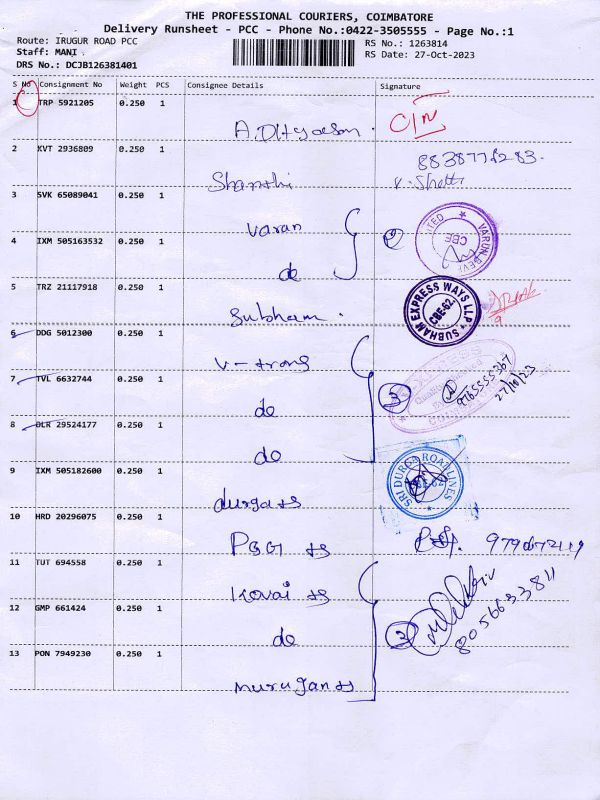 THE PROFESSIONAL COURIERS, COIMBATORE
Delivery Runsheet - PCC - Phone No.:0422-3505555 - Page No.:1
Route: IRUGUR ROAD PCC
RS No.: 1263814
Staff: MANI
RS Date: 27-Oct-2023
DRS No.: DCJB126381401
S No Consignment No Weight PCS Consignee Details Signature
1 TRP 5921205 0.250 1
2 KVT 2936809 0.250 1 Shanthi
3 SVK 65089041 0.250 1 varan
4 IXM 505163532 0.250 1 do
2
VARUN BEVE CBE
5 TRZ 21117918 0.250 1 Subham
SUBHAM EXPRESS WAYS LLP CBE-62
6 DDG 5012300 0.250 1 V-trans
7 TVL 6632744 0.250 1 do
3
9765555367
27/10/23
8 DLR 29524177 0.250 1 do
9 IXM 505182600 0.250 1 durga ts
SRI DURGA ROAD LINES
10 HRD 20296075 0.250 1 PSG ts
11 TUT 694558 0.250 1 Kovai ts
12 GMP 661424 0.250 1 do
2
8056633811
13 PON 7949230 0.250 1 murugan ts